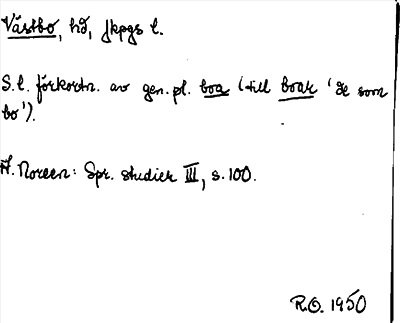 Västbo, hd, Jkpgs l.
S. l. förkortn. av gen. pl. boa (till boar 'de som
bo').
A. Noreen: Spr. studier III, s. 100.
R.O. 1950